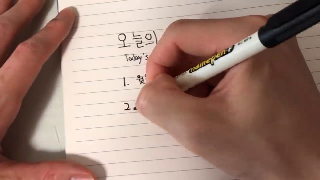 오늘의
Today's
1.
2.
monami